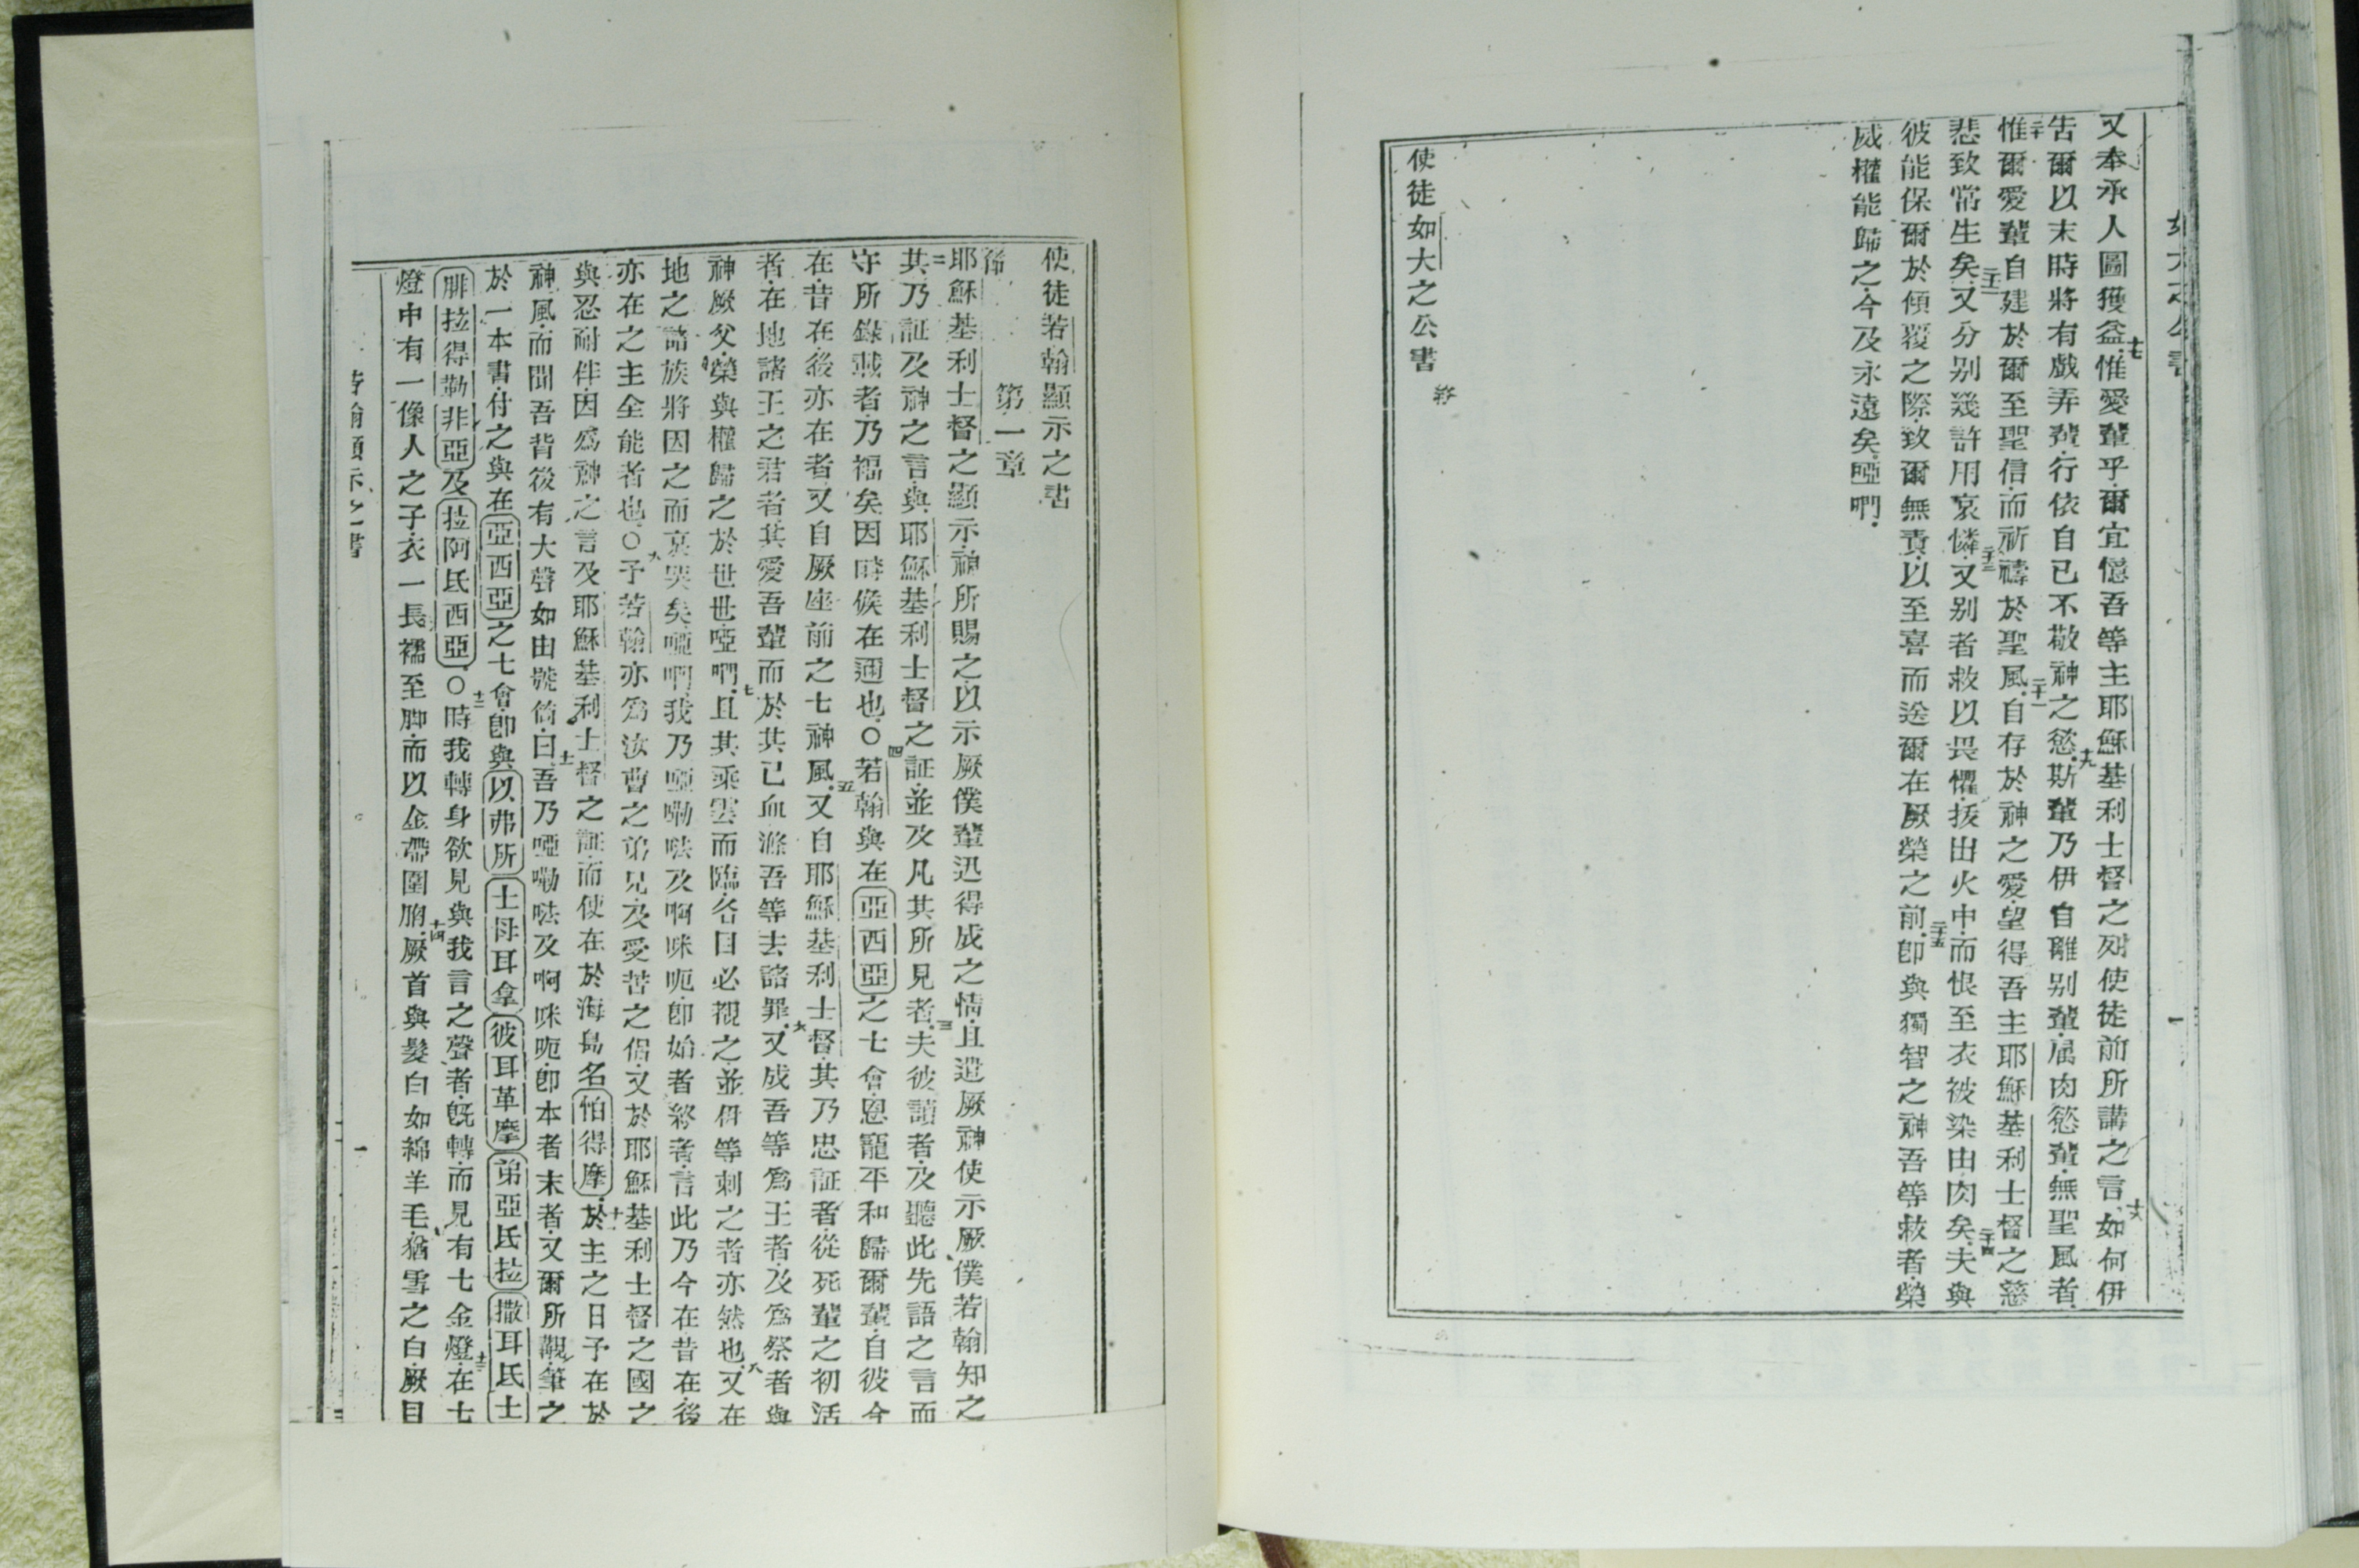 又奉承人圖獲益十七惟愛輩乎爾宜憶吾等主耶穌基利士督之列使徒前所講之言十八如何伊
告爾以末時將有戲弄輩行依自已不敬神之慾十九斯輩乃伊自離別輩屬肉慾輩無聖風者
二十惟爾愛輩自建於爾至聖信而祈禱於聖風二十一自存於神之愛望得吾主耶穌基利士督之慈
悲致常生矣二十二又分別幾許用哀憐二十三又別者救以畏懼拔出火中而恨至衣被染由肉矣二十四夫與
彼能保爾於傾覆之際致爾無責以至喜而送爾在厥榮之前二十五卽與獨智之神吾等救者榮
威權能歸之今及永遠矣啞吶
使徒如大之公書 終
使徒若翰顯示之書
第一章
耶穌基利士督之顯示神所賜之以示厥僕輩迅得成之情且遣厥神使示厥僕若翰知之
二其乃証及神之言與耶穌基利士督之証並及凡其所見者三夫彼讀者及聽此先語之言而
守所錄載者乃福矣因時候在邇也〇四若翰與在亞西亞之七會恩寵平和歸爾輩自彼今
在昔在後亦在者又自厥座前之七神風五又自耶穌基利士督其乃忠証者從死輩之初活
者在地諸王之君者其愛吾輩而於其已血滌吾等去諸罪六又成吾等爲王者及爲祭者與
神厥父榮與權歸之於世世啞吶七且其乘雲而臨各目必覩之並伊等刺之者亦然也八又在
地之諸族將因之而哀哭矣啞吶我乃啞嘞咜及啊咪呃卽始者終者言此乃今在昔在後
亦在之主全能者也〇九予若翰亦爲汝曹之弟兄及受苦之侶又於耶穌基利士督之國之
與忍耐伴因爲神之言及耶穌基利士督之証而使在於海島名怕得摩十於主之日予在於
神風而聞吾背後有大聲如由號筒十一曰吾乃啞嘞咜及啊咪呃卽本者末者又爾所觀筆之
於一本書付之與在亞西亞之七會卽與以弗所士母耳拿彼耳革摩弟亞氐拉撒耳氐士
腓拉得勒非亞及拉阿氐西亞〇十二時我轉身欲見與我言之聲者旣轉而見有七金燈十三在七
燈中有一像人之子衣一長襦至脚而以金帶圍胸十四厥首與髮白如綿羊毛猶雪之白厥目